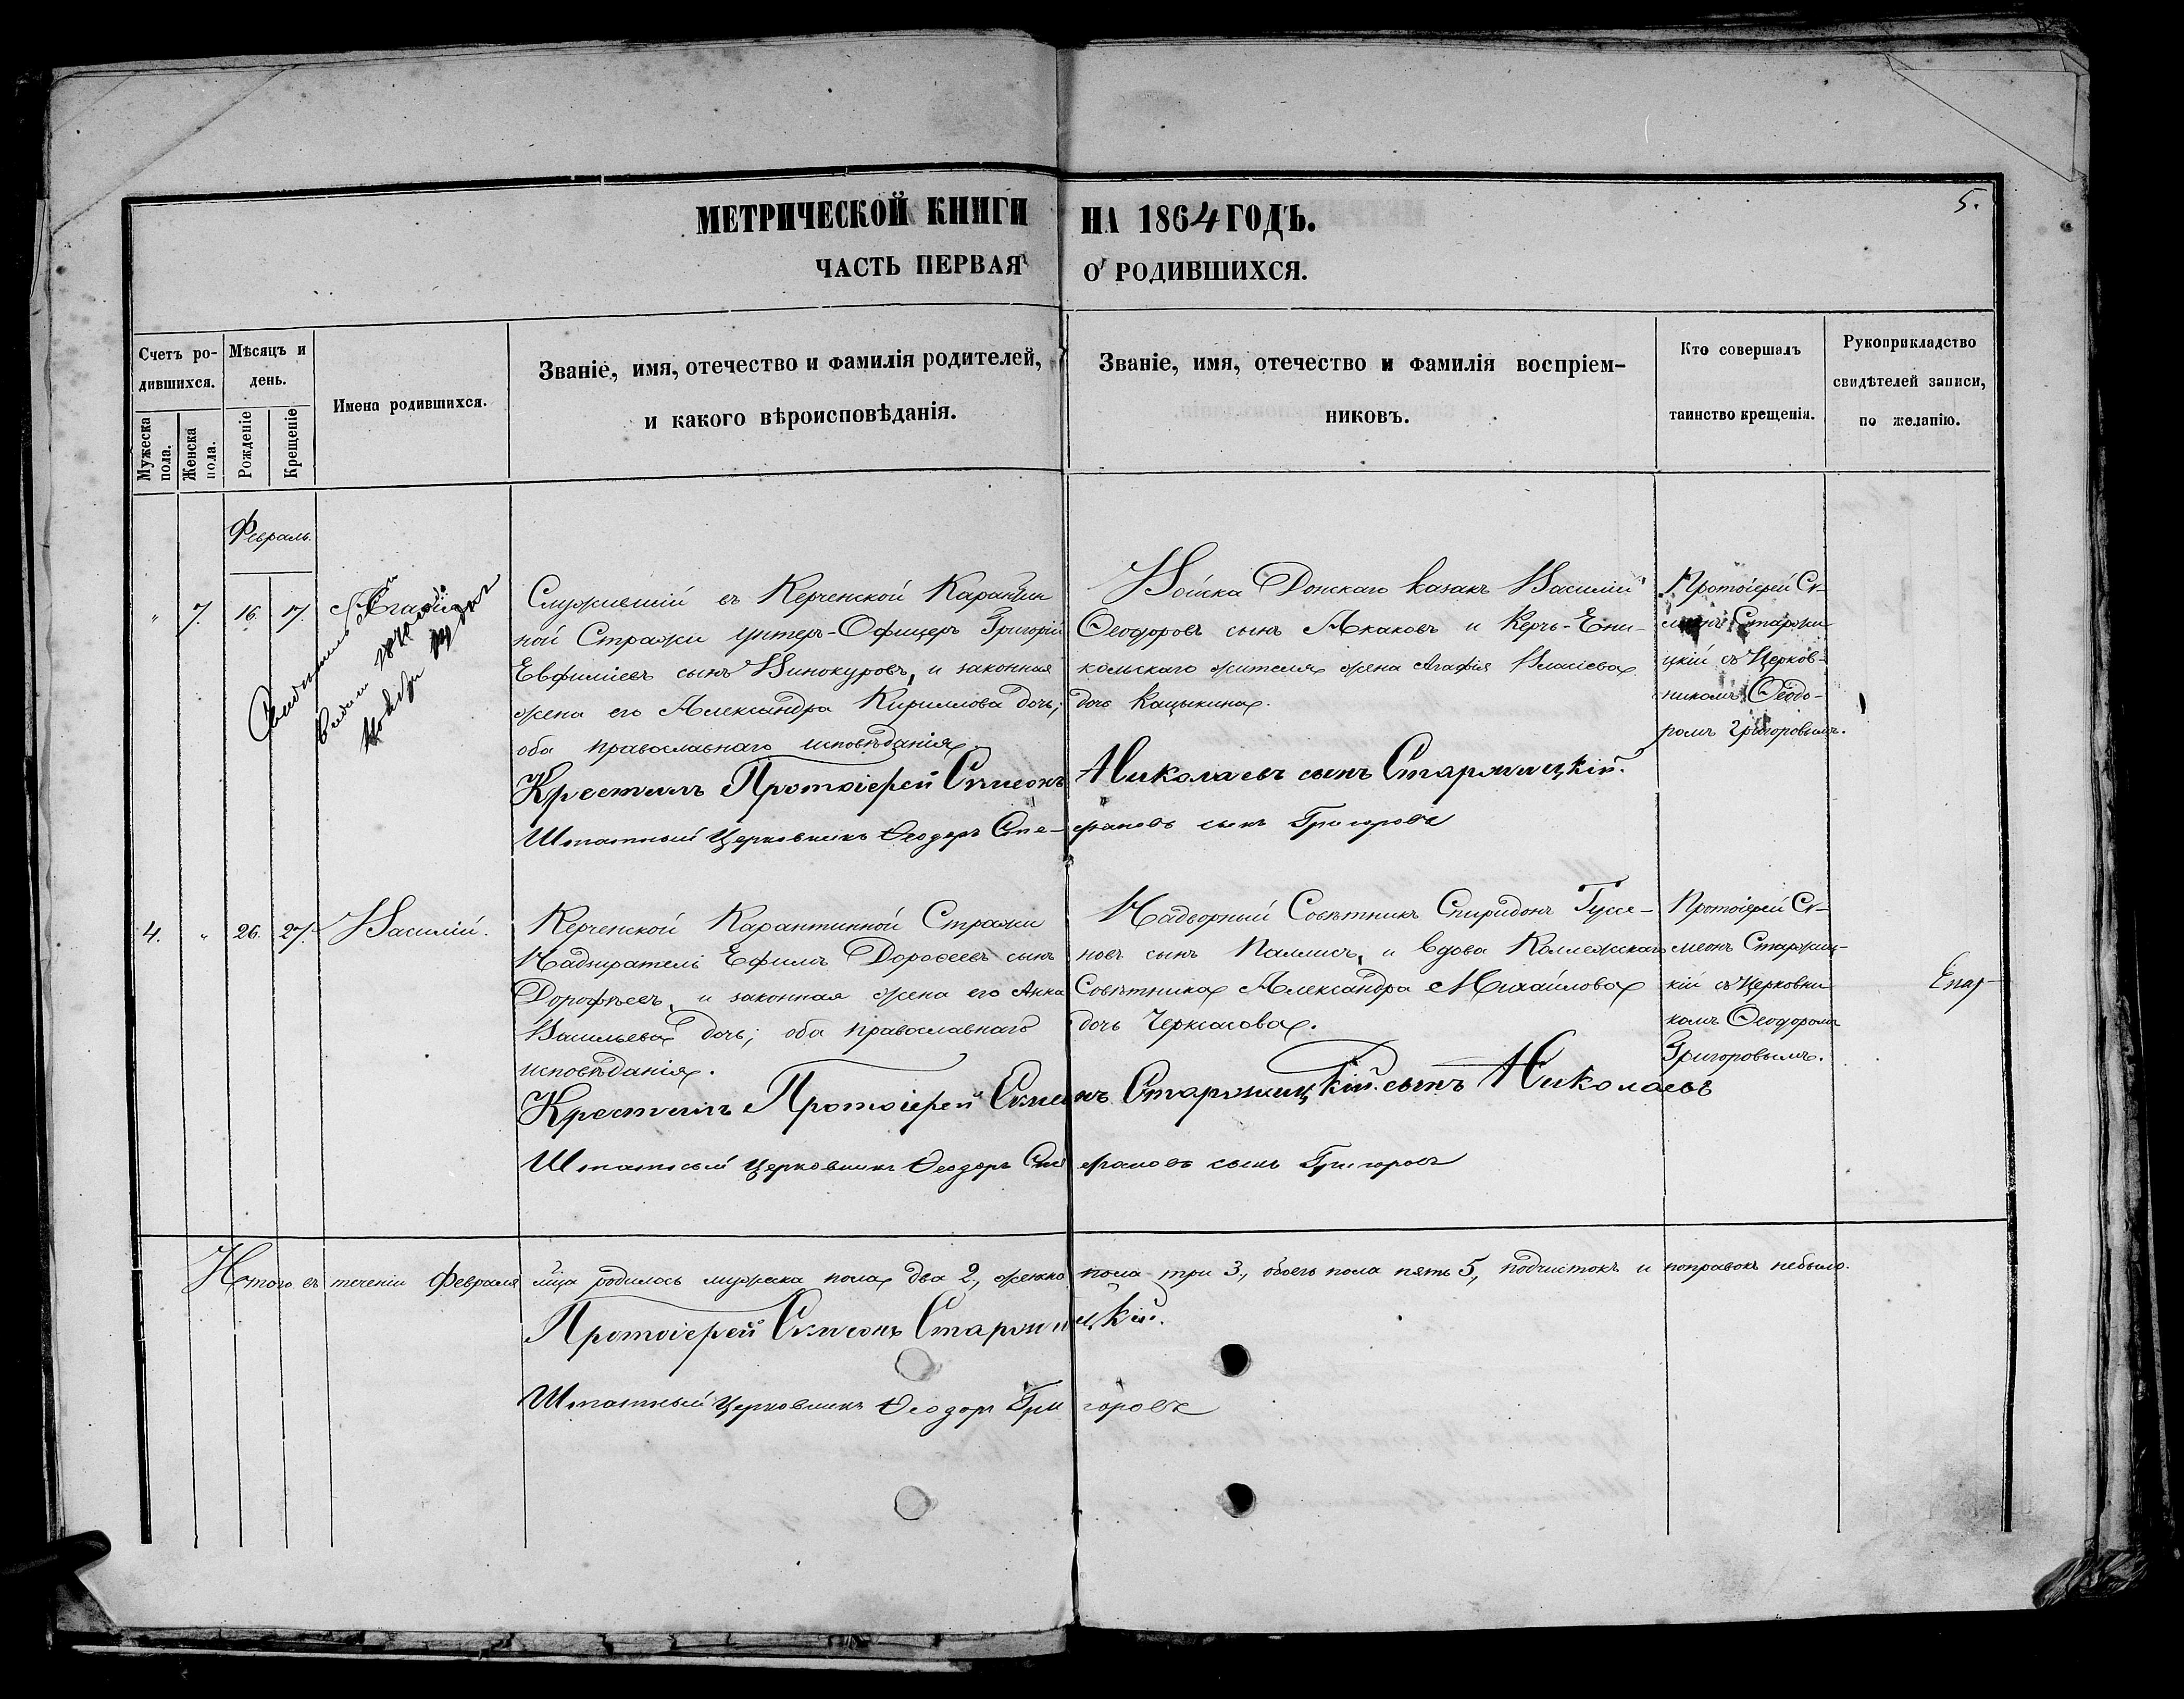 5.
МЕТРИЧЕСКОЙ КНИГИ НА 1864 ГОДЪ.
ЧАСТЬ ПЕРВАЯ О РОДИВШИХСЯ.
Счетъ ро-
дившихся.
Мужеска пола.
Женска пола.
Мѣсяцъ и
день.
Рожденіе
Крещеніе
Имена родившихся.
Званіе, имя, отечество и фамилія родителей,
и какого вѣроисповѣданія.
Званіе, имя, отечество и фамилія воспріем-
никовъ.
Кто совершалъ
таинство крещенія.
Рукоприкладство
свидѣтелей записи,
по желанію.
Февраль.
" 7. 16. 17.
Служившій въ Керченской Карантин
ной Стражи унтеръ-Офицеръ Григорій
Евфиміевъ сынъ Винокуровъ, и законная
жена его Александра Кириллова дочь;
оба православнаго исповѣданія.
Войска Донскаго казакъ Василій
Ѳеодоровъ сынъ Акаковъ и Керчь-Ени-
кольскаго жителя жена Агафія Власіева
дочь Кацыкина.
Протоіерей Сѵ-
меонъ Старжи
цкій съ Церков-
никомъ Ѳеодо-
ромъ Григоровымъ.
Крестилъ Протоіерей Сѵмеонъ Николаевъ сынъ Старжицкій.
Штатный Церковникъ Ѳеодоръ Сте-фановъ сынъ Григоровъ
4. " 26. 27. Василій.
Керченской Карантинной Стражи
Надзиратель Ефимъ Дороѳеевъ сынъ
Дорофѣевъ, и законная жена его Анна
Васильева дочь; оба православнаго
исповѣданія.
Надворный Совѣтникъ Спиридонъ
новъ сынъ и вдова Коллежскаго
Совѣтника Александра Михайлова
дочь Черкасова.
Протоіерей Сѵ-
меонъ Старжиц-
кій съ Церковни
комъ Ѳеодоромъ
Григоровымъ.
Крестилъ Протоіерей Сѵмеонъ Старжицкій. сынъ Николаевъ
Штатный Церковникъ Ѳеодоръ Стефановъ сынъ Григоровъ
Итого въ теченіи Февраля мца родилось мужеска пола два 2, женска пола три 3, обоего пола пять 5, подчистокъ и поправокъ небыло.
Протоіерей Сѵмеонъ Старжицкій.
Штатный Церковникъ Ѳеодоръ Григоровъ